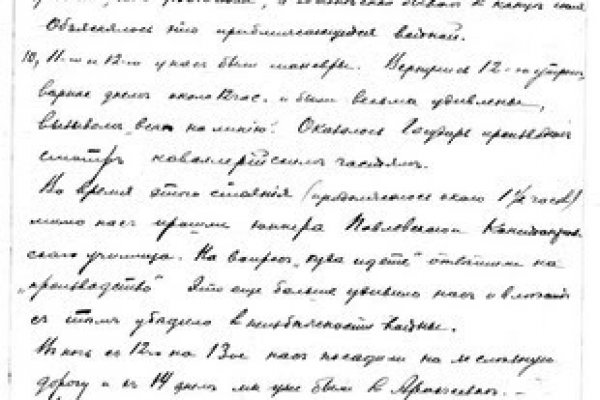 Объяснялось это приближающейся войной.
10, 11-го и 12-го у нас были маневры. Вернулись 12-го утром,
вернее днем около 12 час. и были весьма удивлены,
вызовом „всех на линию". Оказалось Государь производит
смотр кавалерийским частям.
Во время этого стояния (продолжалось около 1½ часов)
мимо нас прошли юнкера Павловского Константинов-
ского училища. На вопрос „куда идете" ответили на
„производство" Это еще больше удивило нас и
с тем убедило в неизбежности войны.
В ночь с 12го на 13ое нас посадили на железную
дорогу и к 14 днем мы уже были в